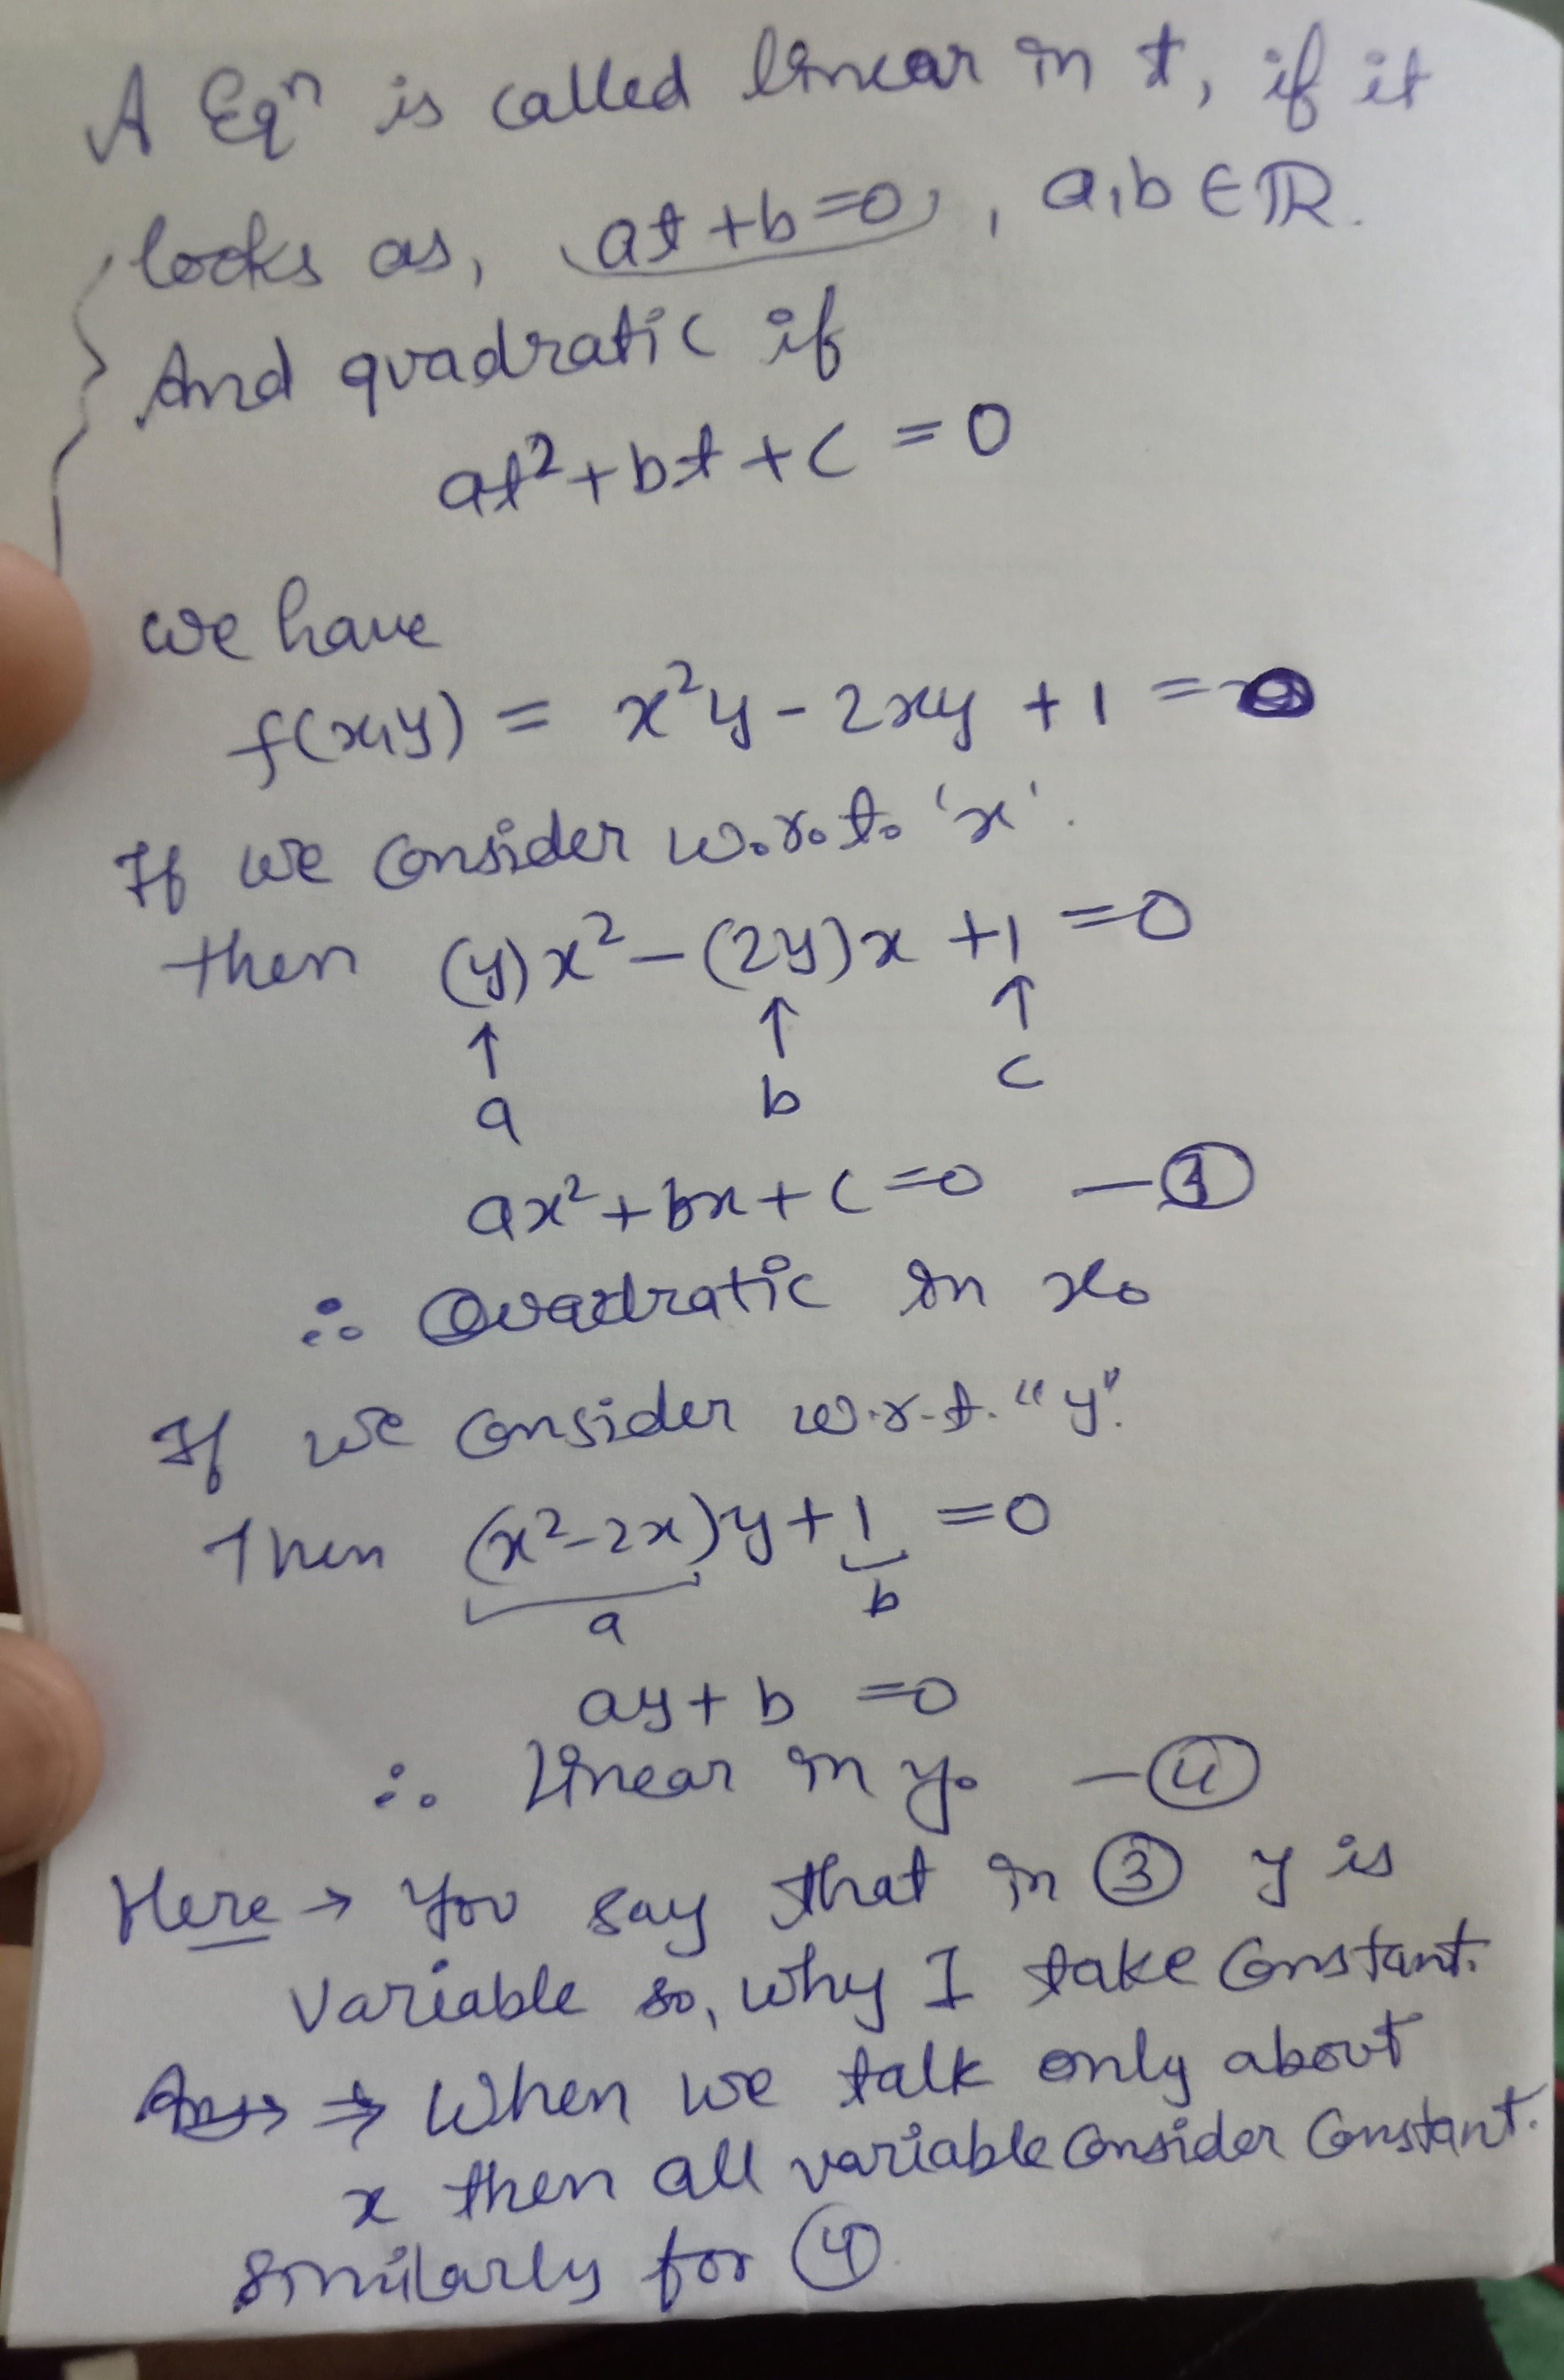 A Eqⁿ is called linear in t, if it
looks as, at + b = 0, a, b ∈ ℝ.
And quadratic if
at² + bt + c = 0
we have
f(x,y) = x²y - 2xy + 1 = 0
If we consider w.r.t. 'x'.
then (y)x² - (2y)x + 1 = 0
↑ ↑ ↑
a b c
ax² + bx + c = 0 — ③
∴ Quadratic in x.
If we consider w.r.t. "y".
Then (x² - 2x)y + 1 = 0
a b
ay + b = 0
∴ Linear in y. — ④
Here → You say that in ③ y is
variable so, why I take Constant.
Ans ⇒ When we talk only about
x then all variable Consider Constant.
Similarly for ④